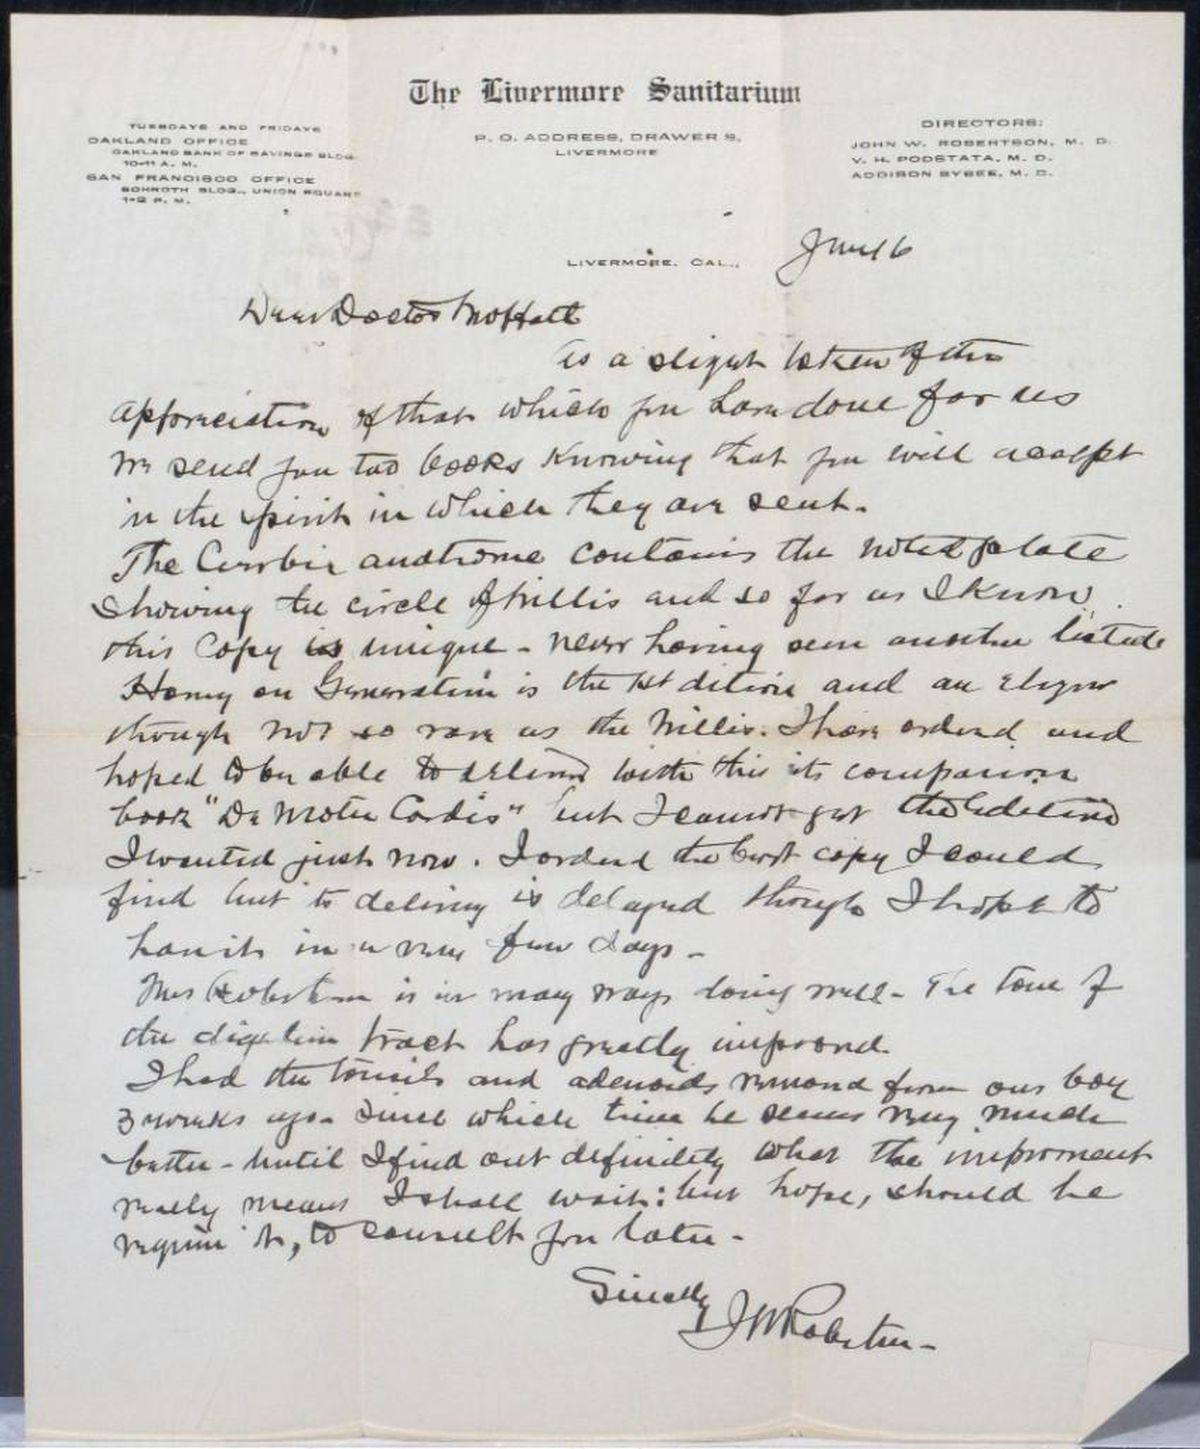 The Livermore Sanitarium
TUESDAYS AND FRIDAYS
OAKLAND OFFICE
OAKLAND BANK OF SAVINGS BLDG.
10-11 A. M.
SAN FRANCISCO OFFICE
SCHROTH BLDG., UNION SQUARE
1-2 P. M.
P. O. ADDRESS, DRAWER S,
LIVERMORE
DIRECTORS:
JOHN W. ROBERTSON, M. D.
V. H. PODSTATA, M. D.
ADDISON BYBEE, M. D.
LIVERMORE, CAL., June 16
Dear Doctor Moffatt
As a slight token of the
appreciation of that which you have done for us
we send you two books knowing that you will accept
in the spirit in which they are sent.
The contains the noted plate
showing the circle of Willis and so far as I know
this copy is unique - never having seen another listed
Harvey on Generation is the 1st edition and an
though not so rare as the Willis. I have ordered and
hoped to be able to deliver with this its companion
book "De Motu Cordis" but I cannot get the edition
I wanted just now. I ordered the best copy I could
find but its delivery is delayed though I hope to
have it in a very few days -
Mrs Robertson is in many ways doing well - The tone of
the digestive tract has greatly improved.
I had the tonsils and adenoids removed from our boy
3 weeks ago - Since which time he seems very much
better - Until I find out definitely what the improvement
really means I shall wait: but hope, should he
require it, to consult you later -
Sincerely
J W Robertson -